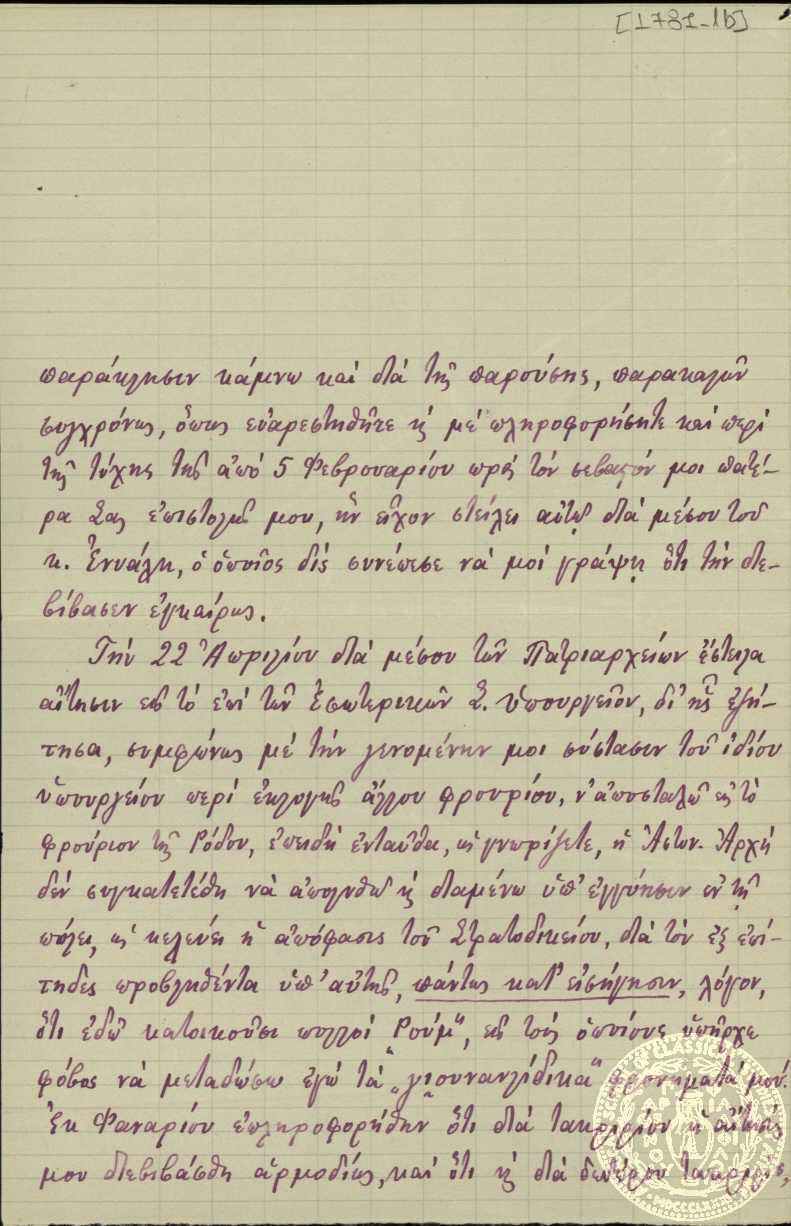 [1781-1b]
παράκλησιν κάμνω καὶ διὰ τῆς παρούσης, παρακαλῶν
συγχρόνως, ὅπως εὐαρεστηθῆτε κ̀ μὲ πληροφορήσητε καὶ περὶ
τῆς τύχης τῆς ἀπὸ 5 Φεβρουαρίου πρὸς τὸν σεβαστόν μοι πατέ-
ρα Σας ἐπιστολῆς μου, ἣν εἶχον στείλει αὐτῷ διὰ μέσου τοῦ
κ. Ἐνυάλη, ὁ ὁποῖος δὶς συνέπεσε νὰ μοὶ γράψῃ ὅτι τὴν διε-
βίβασεν ἐγκαίρως.
Τὴν 22 Ἀπριλίου διὰ μέσου τῶν Πατριαρχείων ἔστειλα
αἴτησιν εἰς τὸ ἐπὶ τῶν Ἐσωτερικῶν Σ. Ὑπουργεῖον, δι' ἧς ἐζή-
τησα, συμφώνως μὲ τὴν γενομένην μοι σύστασιν τοῦ ἰδίου
ὑπουργείου περὶ ἐκλογῆς ἄλλου φρουρίου, ν' ἀποσταλῶ εἰς τὸ
φρούριον τῆς Ρόδου, ἐπειδὴ ἐνταῦθα, ὡς γνωρίζετε, ἡ Ἀστυν. Ἀρχὴ
δὲν συγκατετέθη νὰ ἀπολυθῶ κ̀ διαμένω ὑπ' ἐγγύησιν ἐν τῇ
πόλει, ὡς κελεύει ἡ ἀπόφασις τοῦ Στρατοδικείου, διὰ τὸν ἐξ ἐπί-
τηδες προβληθέντα ὑπ' αὐτῆς, πάντως κατ' εἰσήγησιν, λόγον,
ὅτι ἐδῶ κατοικοῦσι πολλοὶ „Ρούμ", εἰς τοὺς ὁποίους ὑπῆρχε
φόβος νὰ μεταδώσω ἐγὼ τὰ „γιουνανλίδικα" φρονήματά μου.
Ἐκ Φαναρίου ἐπληροφορήθην ὅτι διὰ τακριρίου ἡ αἴτησίς
μου διεβιβάσθη ἁρμοδίως, καὶ ὅτι κ̀ διὰ δευτέρου τακριρίου,